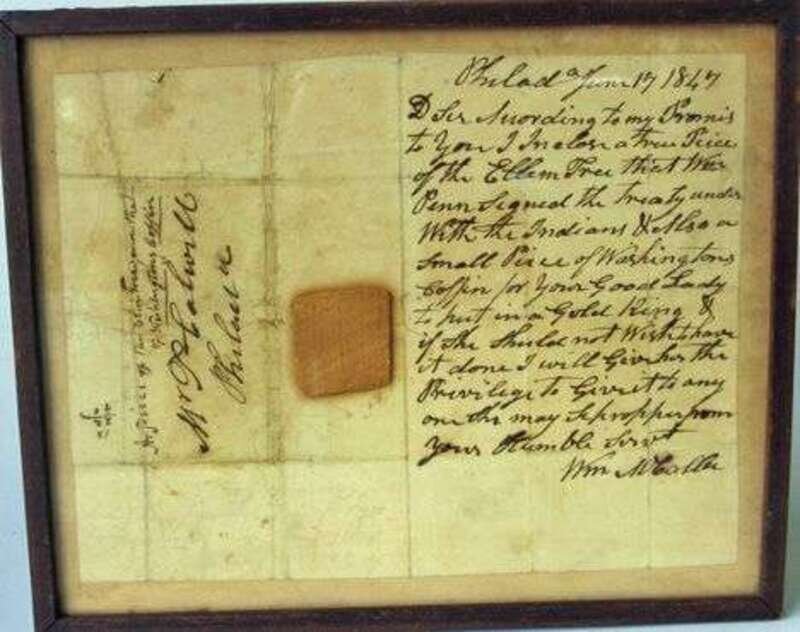 Philad a June 17 1847
D Sir According to my Promis
to You I Inclose a true Peice
of the Ellem Tree that Wm
Penn Segned the treaty under
With the Indians & Also a
Small Peice of Washingtons
Coffin for Your Good Lady
to put in a Gold Ring &
if She Shuld not Wish to have
it done I will Give her the
Privilege to Give it to any
one She may Se propper from
Your Humble Servt
Wm
A piece of the Elm Tree and the
of Washingtons Coffin
Mr
Philad a